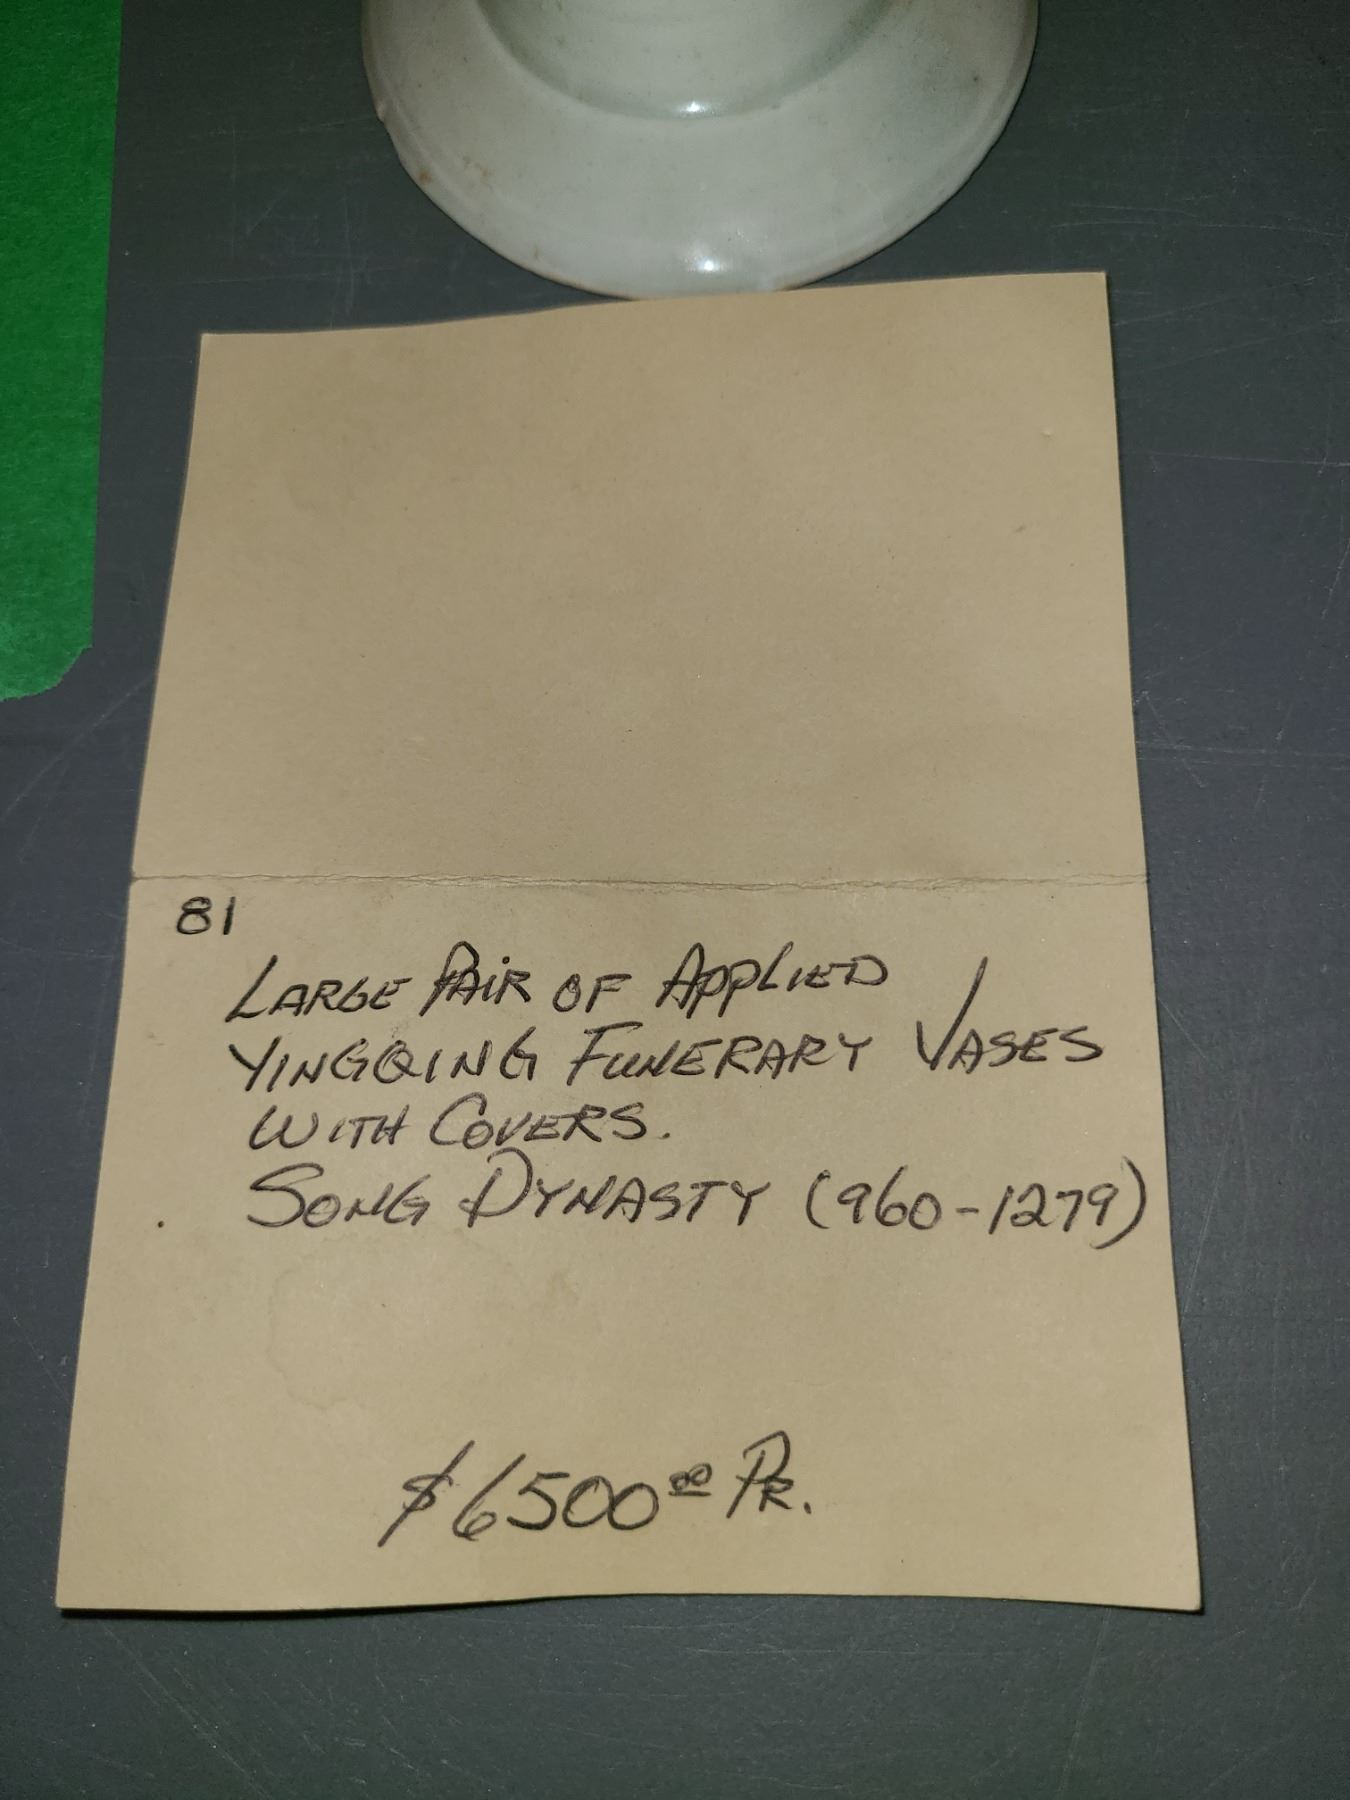 81
LARGE PAIR OF APPLIED
YINGQING FUNERARY VASES
WITH COVERS.
SONG DYNASTY (960-1279)
$6500.00 PR.